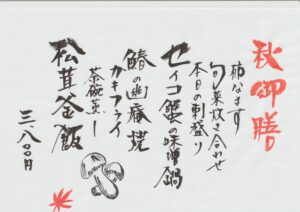 秋御膳
柿なます
旬菜炊き合わせ
本日の刺盛り
セイコ蟹の味噌鍋
鰆の幽庵焼
カキフライ
茶碗蒸し
松茸釜飯
三、八〇〇円